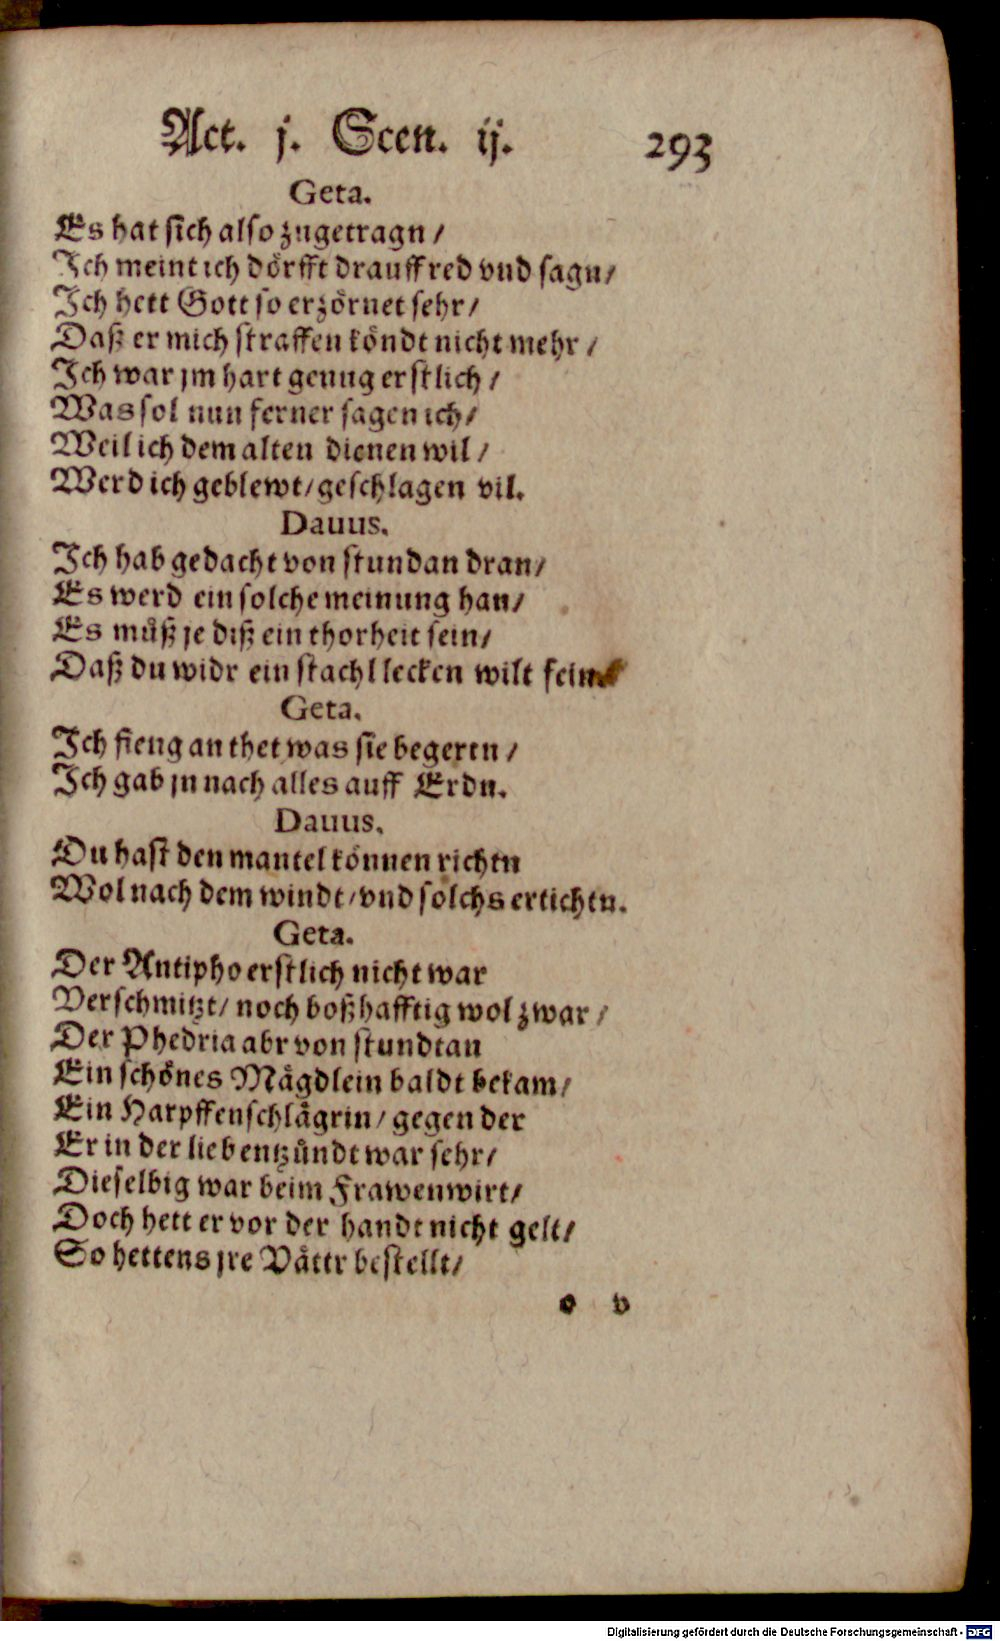 Act. j. Scen. ij. 293
Geta.
Es hat sich also zugetragn /
Ich meint ich dörfft drauff red vnd sagn/
Ich hett Gott so erzörnet sehr/
Daß er mich straffen köndt nicht mehr /
Ich war jm hart genug erstlich /
Was sol nun ferner sagen ich/
Weil ich dem alten dienen wil /
Werd ich geblewt/geschlagen vil.
Dauus.
Ich hab gedacht von stundan dran/
Es werd ein solche meinung han/
Es muͤß je diß ein thorheit sein/
Daß du widr ein stachl lecken wilt fein
Geta.
Ich fieng an thet was sie begertn /
Ich gab jn nach alles auff Erdn.
Dauus.
Du hast den mantel können richtn
Wol nach dem windt/vnd solchs ertichtn.
Geta.
Der Antipho erstlich nicht war
Verschmitzt/ noch boßhafftig wol zwar /
Der Phedria abr von stundtan
Ein schönes Maͤgdlein baldt bekam/
Ein Harpffenschlaͤgrin/ gegen der
Er in der lieb entzuͤndt war sehr/
Dieselbig war beim Frawenwirt/
Doch hett er vor der handt nicht gelt/
So hettens jre Vaͤttr bestellt/
o v
Digitalisierung gefördert durch die Deutsche Forschungsgemeinschaft - DFG